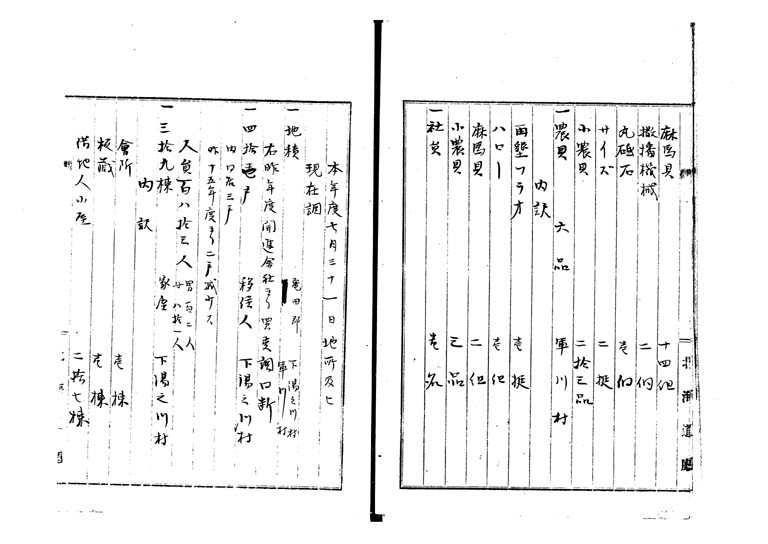 麻馬具 十四但
撒播機械 二個
丸砥石 壱個
サイズ 二挺
小農具 二拾三品
一農具 六品 軍川村
内訳
再墾フラオ 壱挺
ハロー 壱但
麻馬具 二但
小農具 三品
一社員 壱名
北海道廳
本年度七月三十一日地所及七
現在調
一地積 亀田郡 下湯之川村 軍川村
右昨年度開進会社ヨリ買受調口断
一四拾壱戸 移住人 下湯之川村
内口若三戸
昨十五年度ヨリ二戸減少ス
人員百八拾三人 男百二人 女八拾一人
一三拾九棟 家屋 下湯之川村
内訳
會所 壱棟
板蔵 壱棟
借地人小屋 二拾七棟